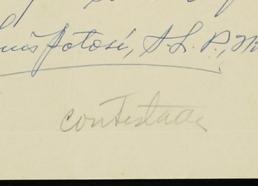 Luis Potosí, S. L. P., M
contestada